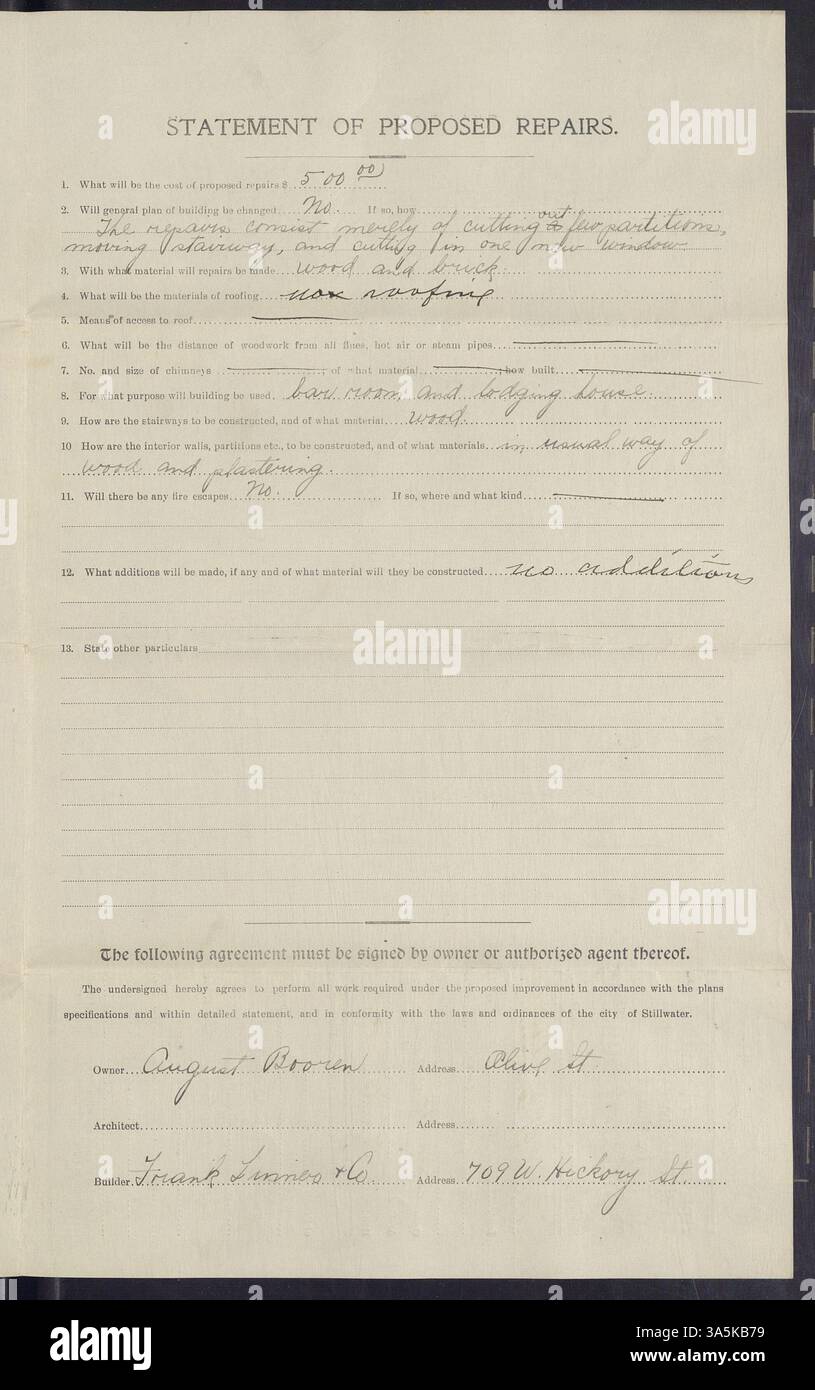 STATEMENT OF PROPOSED REPAIRS.
1. What will be the cost of proposed repairs $ 500 00
2. Will general plan of building be changed No. If so, how
The repairs consist merely of cutting out few partitions,
moving stairway, and cutting in one new window
3. With what material will repairs be made wood and brick.
4. What will be the materials of roofing roofing
5. Means of access to roof
6. What will be the distance of woodwork from all flues, hot air or steam pipes
7. No. and size of chimneys ; of what material ; how built
8. For what purpose will building be used bar room and lodging house.
9. How are the stairways to be constructed, and of what material wood.
10 How are the interior walls, partitions etc., to be constructed, and of what materials in usual way of
wood and plastering.
11. Will there be any fire escapes No. If so, where and what kind
12. What additions will be made, if any and of what material will they be constructed no additions
13. State other particulars
The following agreement must be signed by owner or authorized agent thereof.
The undersigned hereby agrees to perform all work required under the proposed improvement in accordance with the plans
specifications and within detailed statement, and in conformity with the laws and ordinances of the city of Stillwater.
Owner August Booren Address Olive St.
Architect Address
Builder Frank Linner & Co. Address 709 W. Hickory St.
alamy
Image ID: 3A5KB79
www.alamy.com